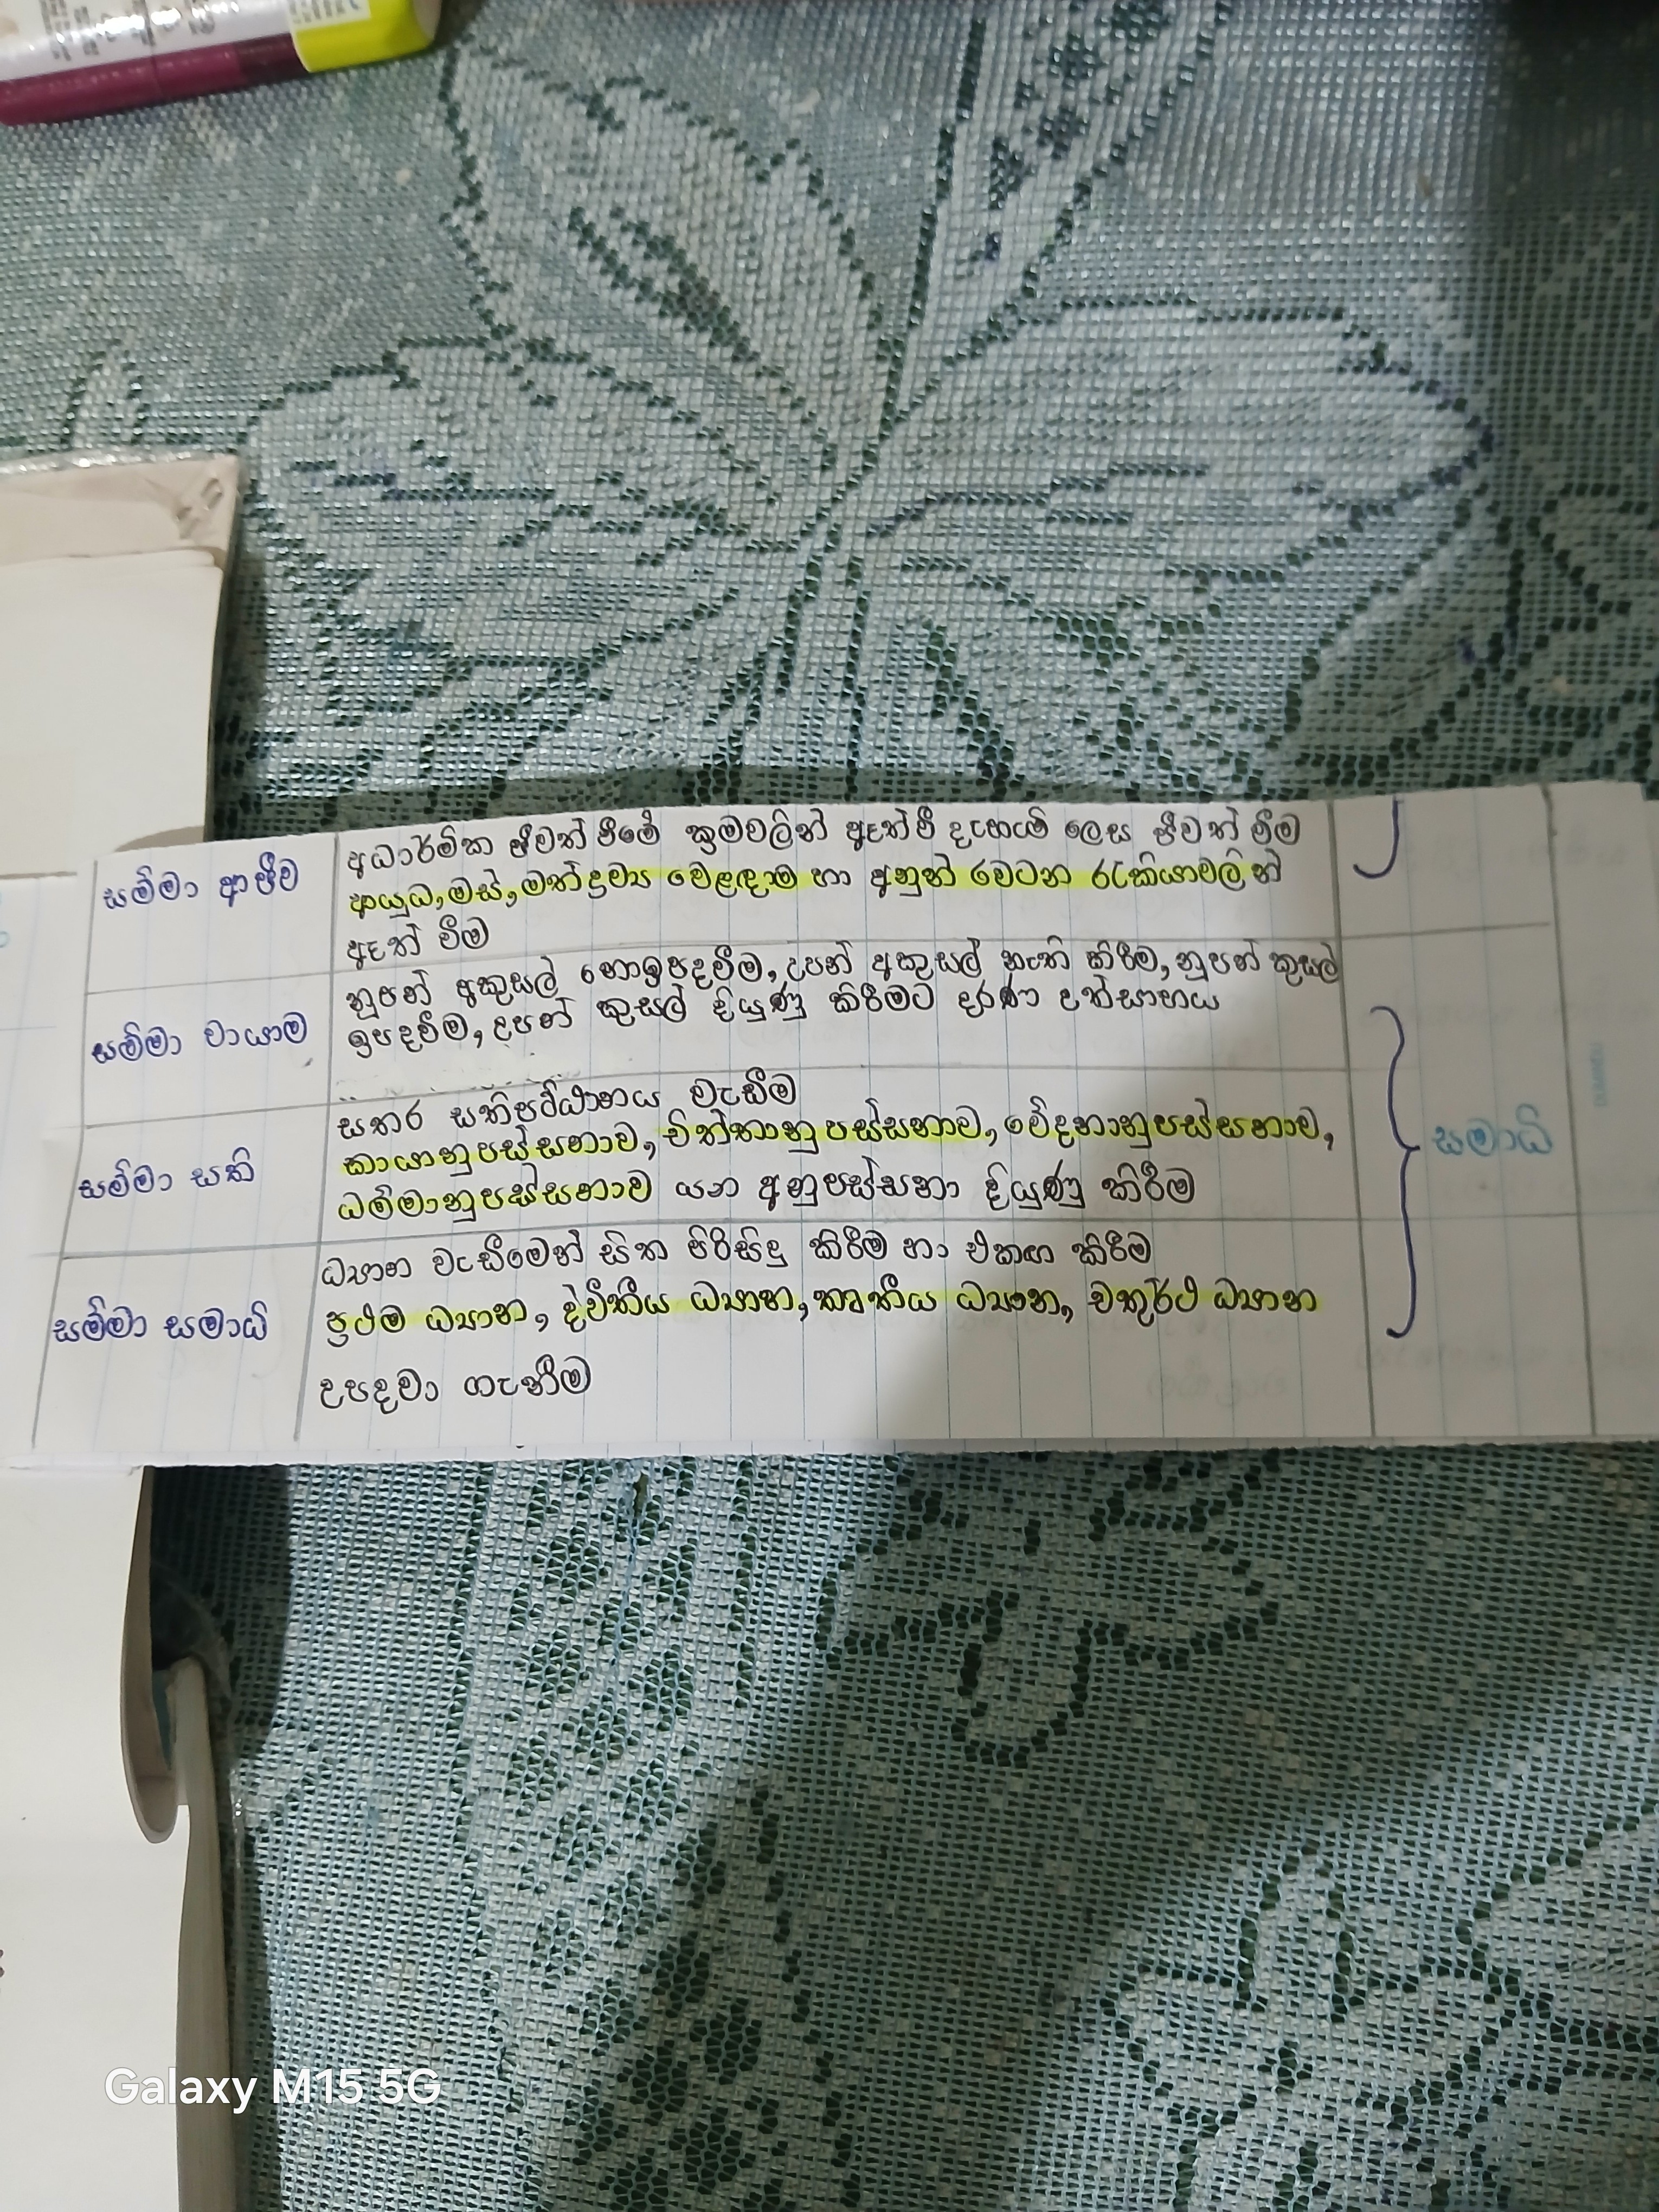 සම්මා ආජීව
අධාර්මික ජීවත් වීමේ ක්‍රමවලින් ඈත්වී දැහැමි ලෙස ජීවත් වීම
ආයුධ, මස්, මත්ද්‍රව්‍ය වෙළඳාම හා අනුන් රවටන රැකියාවලින්
ඈත් වීම
සම්මා වායාම
නූපන් අකුසල් නොඉපදවීම, උපන් අකුසල් නැති කිරීම, නූපන් කුසල්
ඉපදවීම, උපන් කුසල් දියුණු කිරීමට දරණ උත්සාහය
සම්මා සති
සතර සතිපට්ඨානය වැඩීම
කායානුපස්සනාව, චිත්තානුපස්සනාව, වේදනානුපස්සනාව,
ධම්මානුපස්සනාව යන අනුපස්සනා දියුණු කිරීම
සමාධි
සම්මා සමාධි
ධ්‍යාන වැඩීමෙන් සිත පිරිසිදු කිරීම හා එකඟ කිරීම
ප්‍රථම ධ්‍යාන, ද්වීතීය ධ්‍යාන, තෘතීය ධ්‍යාන, චතුර්ථ ධ්‍යාන
උපදවා ගැනීම
Galaxy M15 5G